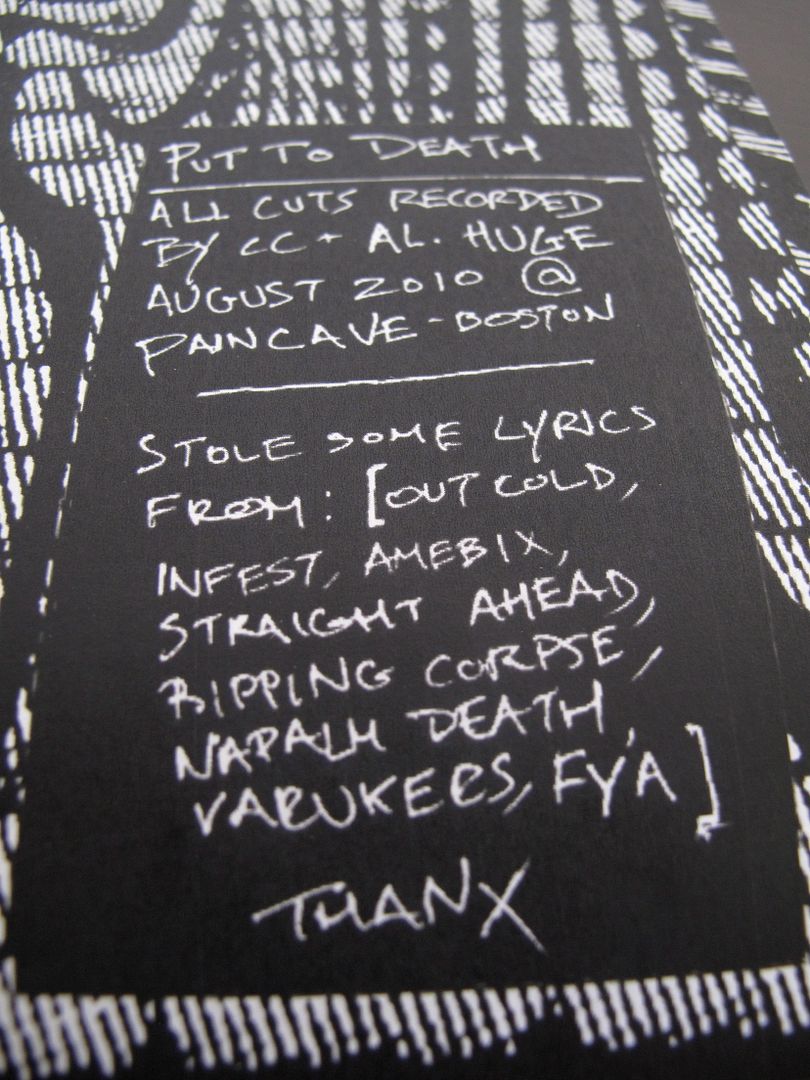 PUT TO DEATH
ALL CUTS RECORDED
BY CC + AL. HUGE
AUGUST 2010 @
PAINCAVE-BOSTON
STOLE SOME LYRICS
FROM: [OUT COLD,
INFEST, AMEBIX,
STRAIGHT AHEAD,
RIPPING CORPSE,
NAPALM DEATH,
VARUKERS, FY'A]
THANX